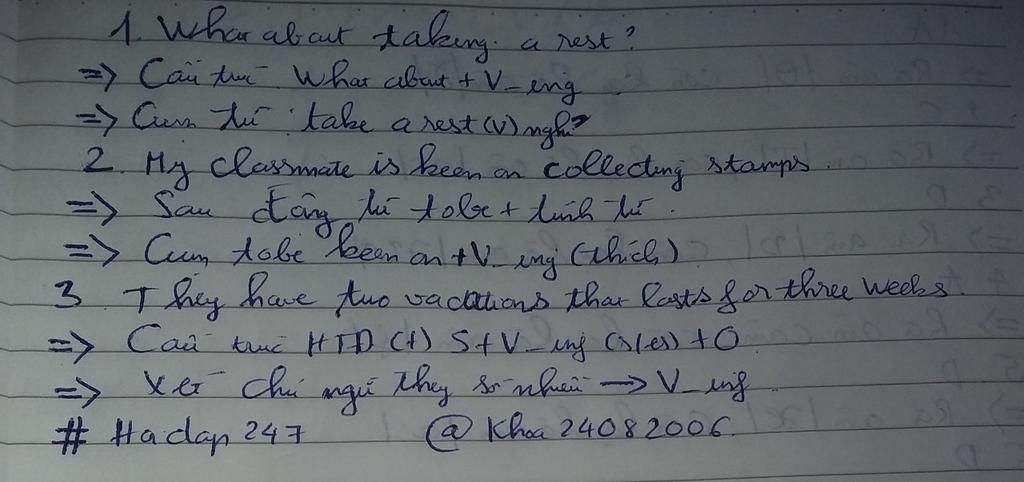 1. What about taking a rest?
=> Cấu trúc What about + V_ing
=> Cụm từ : take a rest (v) nghỉ
2. My classmate is keen on collecting stamps.
=> Sau động từ tobe + tính từ.
=> Cụm tobe keen on + V_ing (thích)
3 They have two vacations that lasts for three weeks.
=> Cấu trúc HTD (+) S + V_ing (s/es) + O
=> Xét chủ ngữ they số nhiều -> V_ing
# Hadap 247 @ Khoa 24082006.